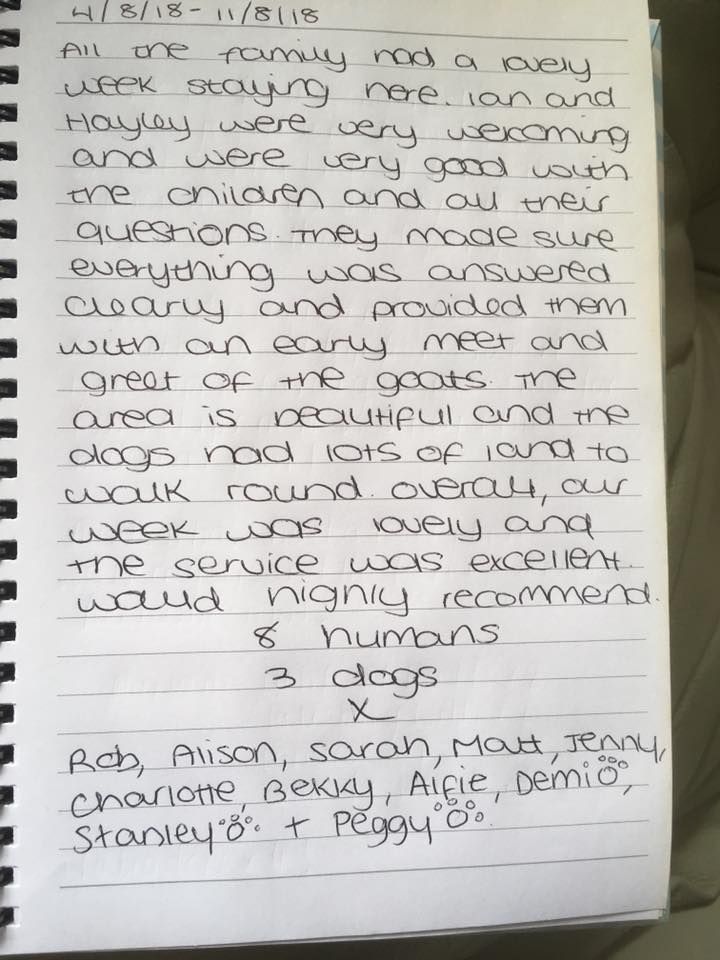 4/8/18 - 11/8/18
All the family had a lovely
week staying here. Ian and
Hayley were very welcoming
and were very good with
the children and all their
questions. They made sure
everything was answered
clearly and provided them
with an early meet and
greet of the goats. The
area is beautiful and the
dogs had lots of land to
walk round. overall, our
week was lovely and
the service was excellent.
would highly recommend.
8 humans
3 dogs
X
Rob, Alison, Sarah, Matt, Jenny,
Charlotte, Bekky, Alfie, Demi,
Stanley + Peggy